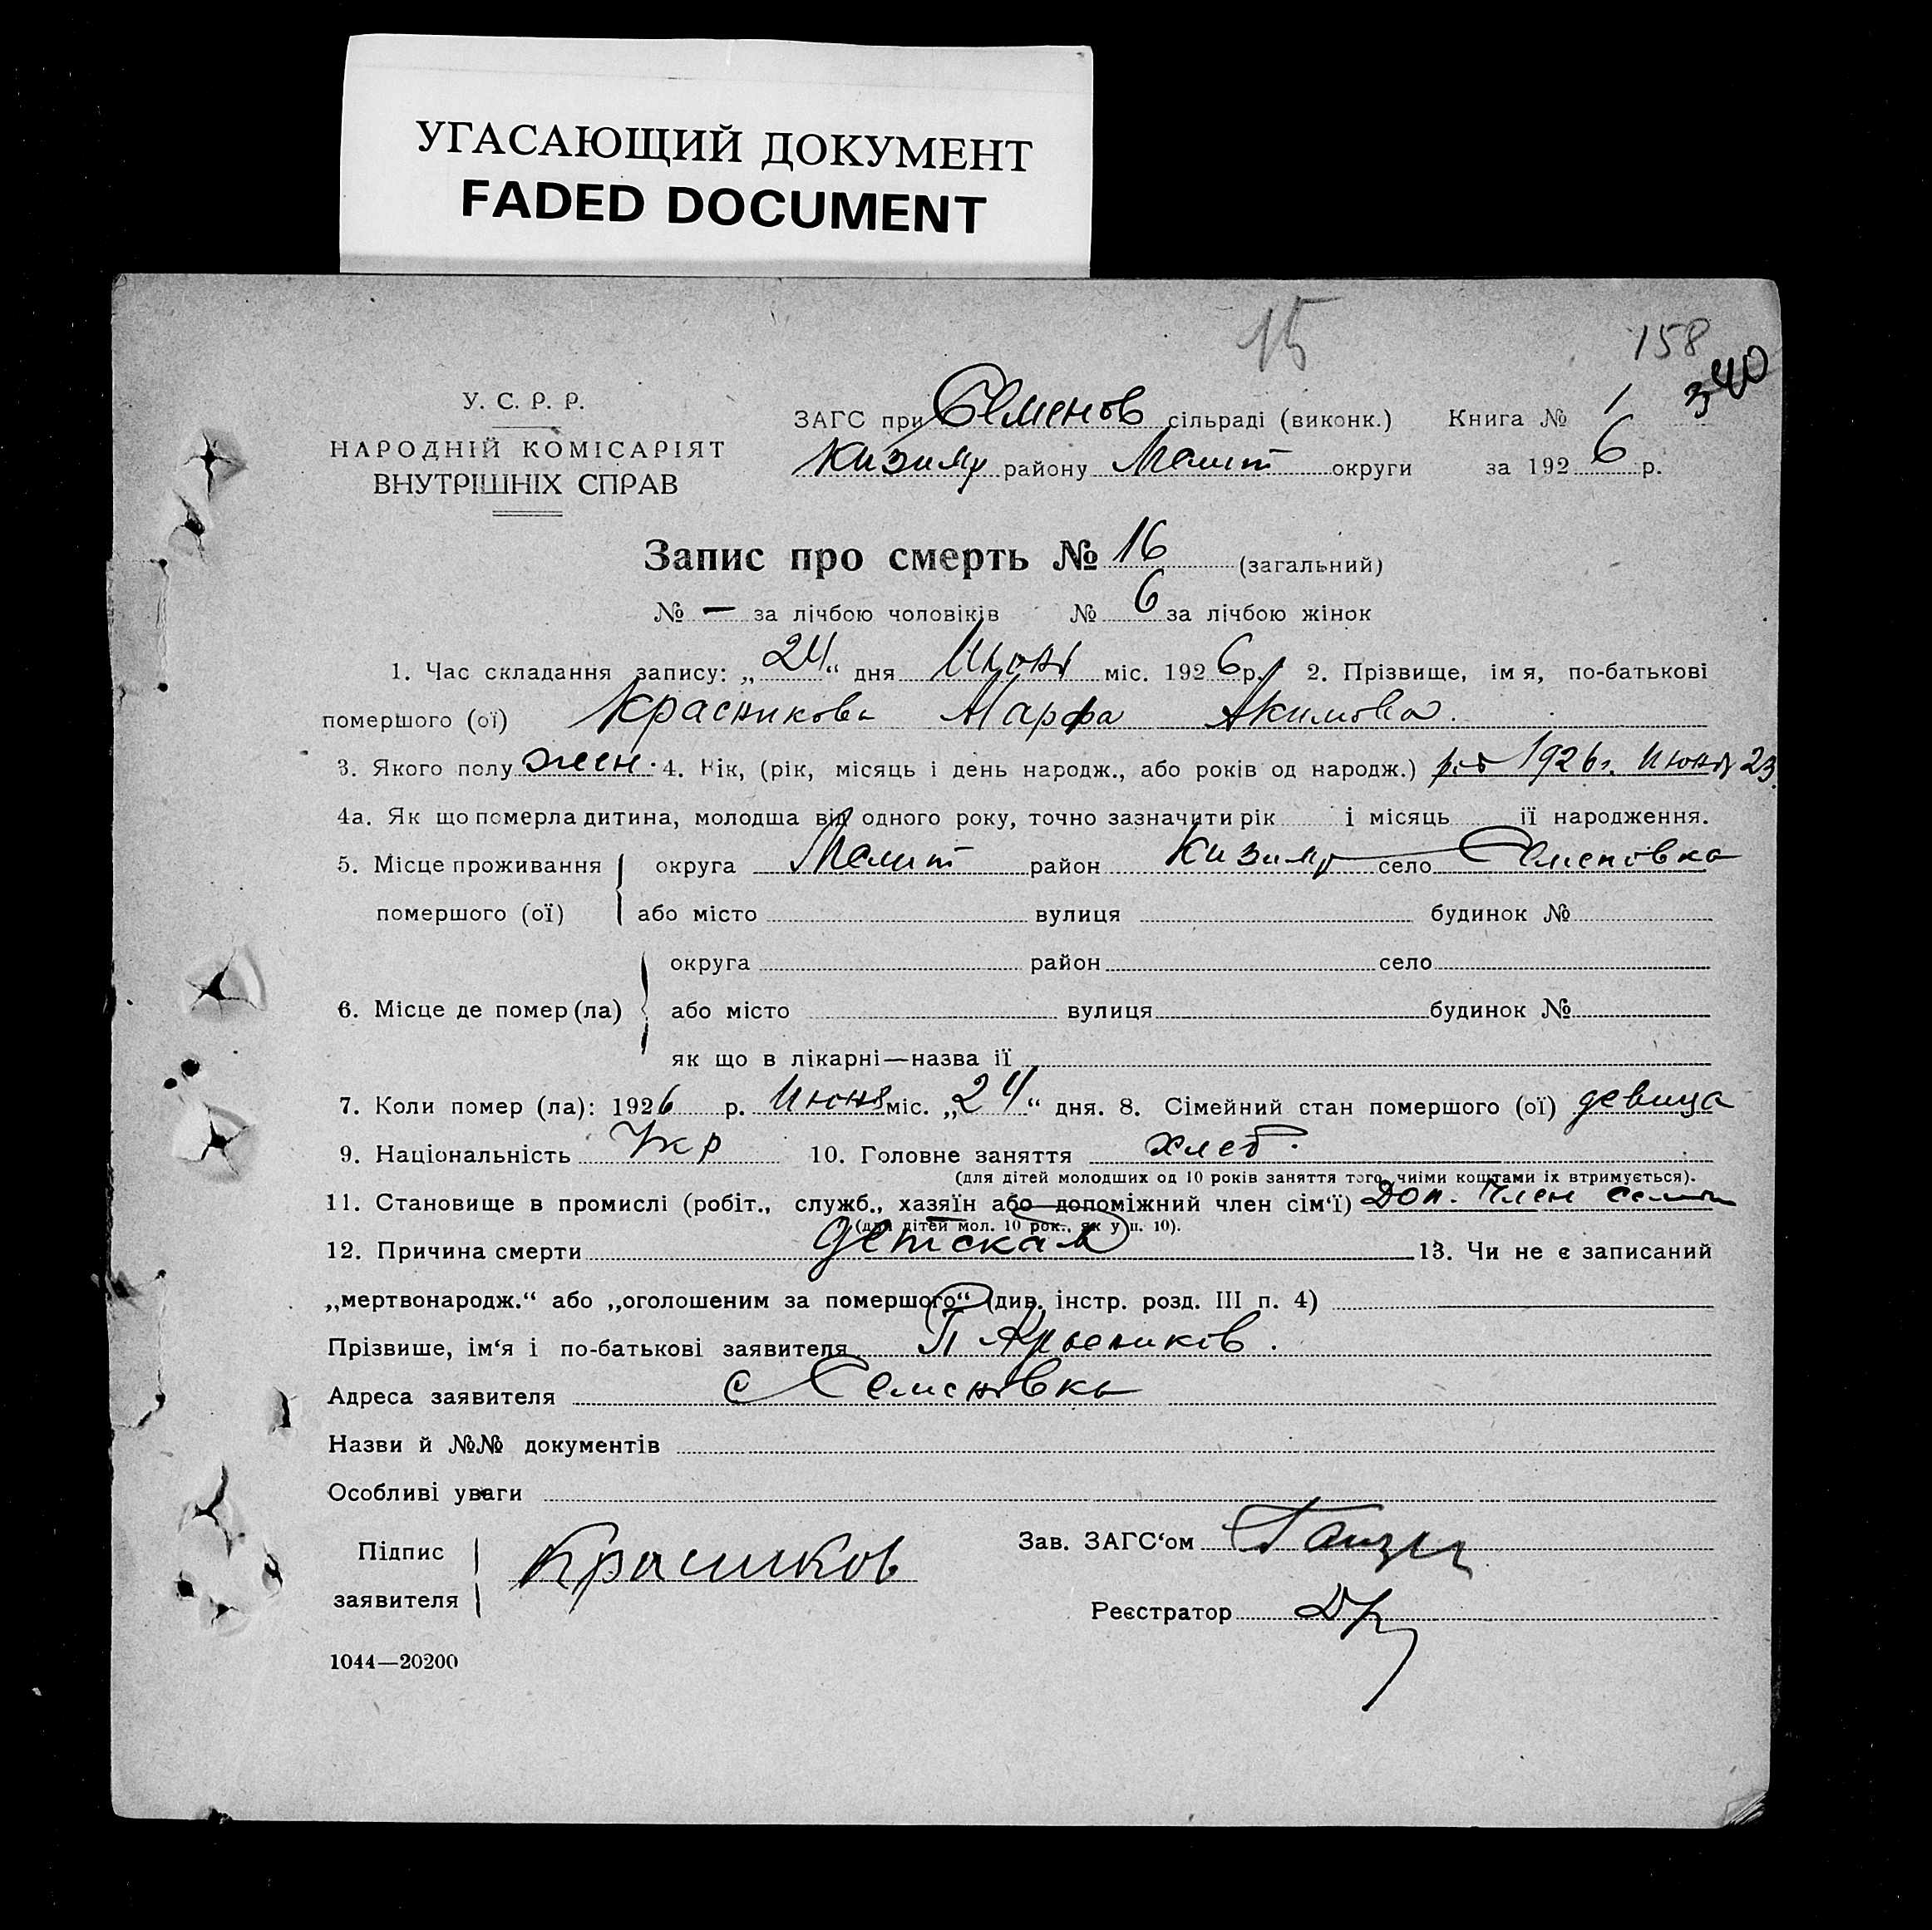 УГАСАЮЩИЙ ДОКУМЕНТ
FADED DOCUMENT
15
158
340
У. С. Р. Р.
НАРОДНІЙ КОМІСАРІЯТ
ВНУТРІШНІХ СПРАВ
ЗАГС при Семенов сільраді (виконк.) Книга № 1
району Мелит округи за 1926 р.
Запис про смерть № 16 (загальний)
№ — за лічбою чоловіків № 6 за лічбою жінок
1. Час складання запису: „24“ дня Июня міс. 1926 р. 2. Прізвище, імя, по-батькові
помершого (ої) Красникова Марфа Акимова.
3. Якого полу жен. 4. Вік, (рік, місяць і день народж., або років од народж.) 1926 г. Июня 23
4а. Як що померла дитина, молодша від одного року, точно зазначити рік і місяць її народження.
5. Місце проживання округа Мелит район село Семеновка
помершого (ої) або місто вулиця будинок №
округа район село
6. Місце де помер (ла) або місто вулиця будинок №
як що в лікарні—назва її
7. Коли помер (ла): 1926 р. Июня міс. „24“ дня. 8. Сімейний стан помершого (ої) девица
9. Національність Укр 10. Головне заняття хлеб.
(для дітей молодших од 10 років заняття того, чиїми коштами їх втримується).
11. Становище в промислі (робіт., служб., хазяїн або допоміжний член сім‘ї) Доп. член семьи
(для дітей мол. 10 рок., як у п. 10).
12. Причина смерти детская 13. Чи не є записаний
„мертвонародж.“ або „оголошеним за помершого“ (див. інстр. розд. III п. 4)
Прізвише, ім‘я і по-батькові заявителя П Красников.
Адреса заявителя с Семеновка
Назви й №№ документів
Особливі уваги
Підпис
заявителя
Красников
Зав. ЗАГС‘ом
Реєстратор
1044—20200